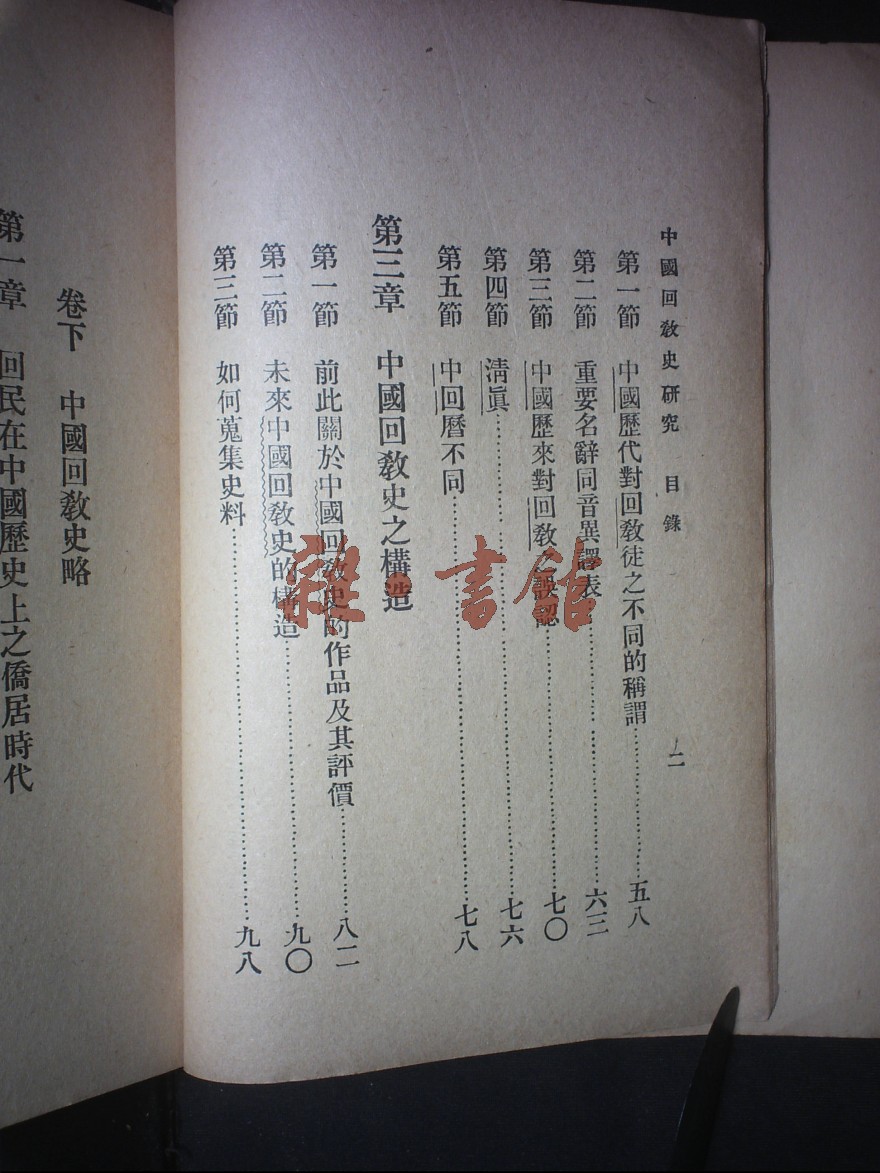 中國回敎史硏究　目錄
二
第一節　中國歷代對回敎徒之不同的稱謂……五八
第二節　重要名辭同音異譯表……六三
第三節　中國歷來對回敎之誤認……七〇
第四節　淸眞……七六
第五節　中回曆不同……七八
第三章　中國回敎史之構造
第一節　前此關於中國回敎史的作品及其評價……八二
第二節　未來中國回敎史的構造……九〇
第三節　如何蒐集史料……九八
卷下　中國回敎史略
第一章　回民在中國歷史上之僑居時代
雜·書館